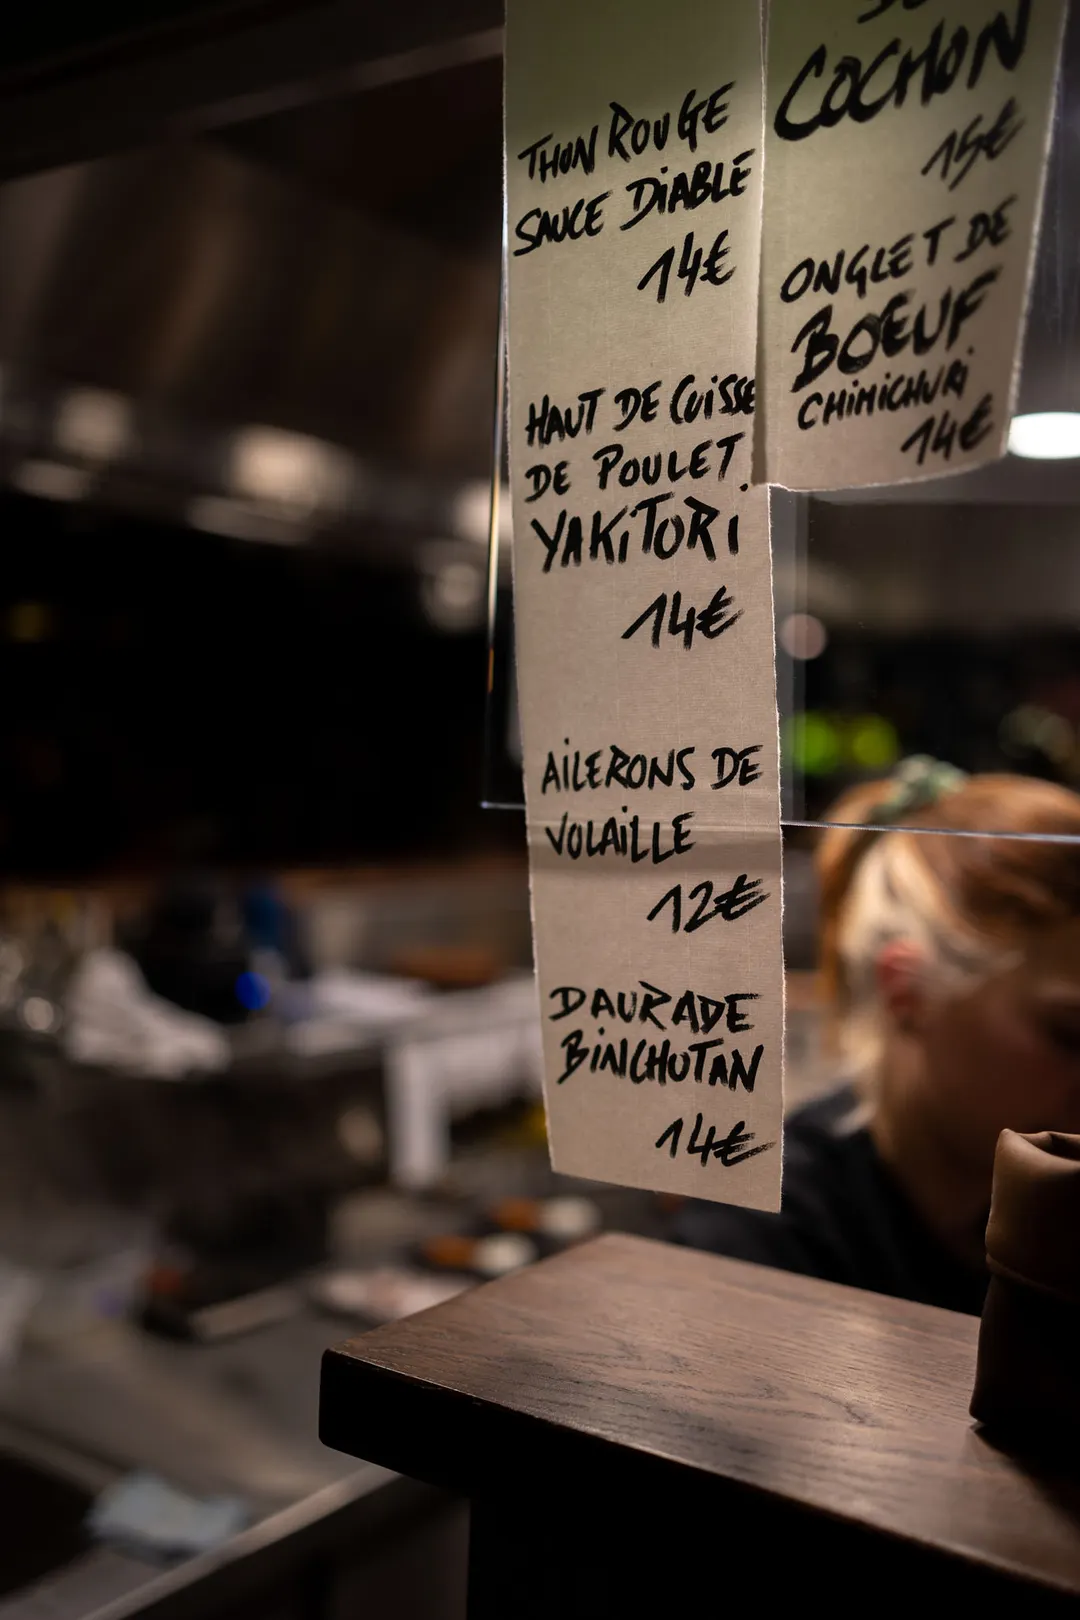 THON ROUGE
SAUCE DiABLE
14€
HAUT DE CUiSSE
DE POULET
YAKiTORi
14€
AiLERONS DE
VOLAiLLE
12€
DAURADE
BiNCHOTAN
14€
COCHON
15€
ONGLET DE
BOEUF
CHiMiCHURi
14€